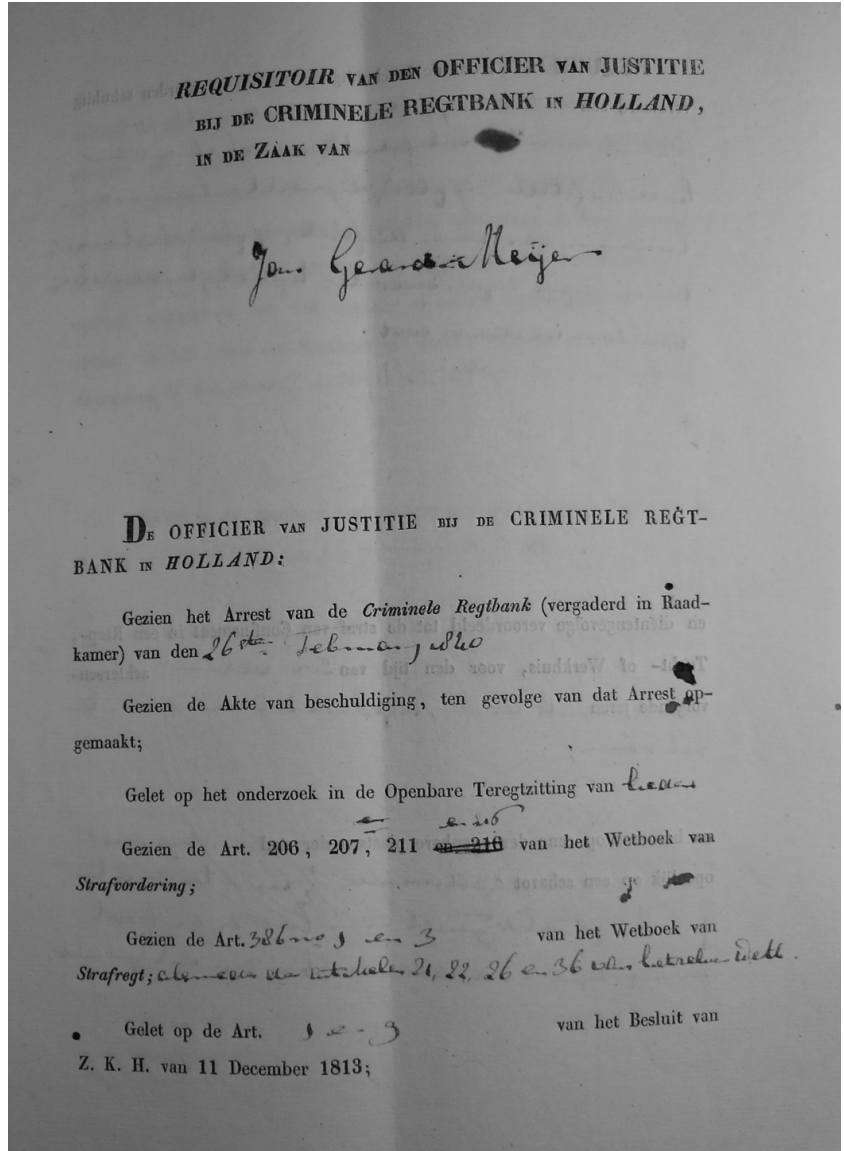 REQUISITOIR VAN DEN OFFICIER VAN JUSTITIE
BIJ DE CRIMINELE REGTBANK IN HOLLAND,
IN DE ZAAK VAN
Jan Meijer
DE OFFICIER VAN JUSTITIE BIJ DE CRIMINELE REGT-
BANK IN HOLLAND:
Gezien het Arrest van de Criminele Regtbank (vergaderd in Raad-
kamer) van den 26ste February 1840
Gezien de Akte van beschuldiging, ten gevolge van dat Arrest op-
gemaakt;
Gelet op het onderzoek in de Openbare Teregtzitting van heden
en en 216
Gezien de Art. 206, 207, 211 en 216 van het Wetboek van
Strafvordering;
Gezien de Art. 386 no 1 en 3 van het Wetboek van
Strafregt; alsmede de artikelen 21, 22, 26 en 36 van hetzelve Wetb.
Gelet op de Art. van het Besluit van
Z. K. H. van 11 December 1813;